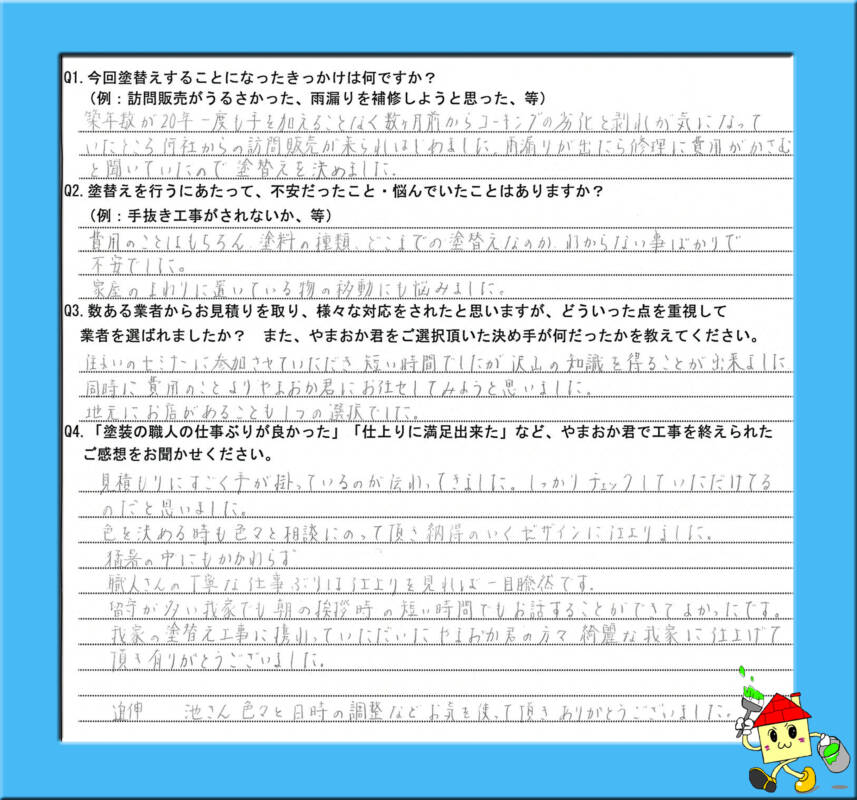 Q1. 今回塗替えすることになったきっかけは何ですか？
（例：訪問販売がうるさかった、雨漏りを補修しようと思った、等）
築年数が20年一度も手を加えることなく数ヶ月前からコーキングの劣化と剥れが気になって
いたところ何社からの訪問販売が来られはじめました。雨漏りが出たら修理に費用がかさむ
と聞いていたので塗替えを決めました.
Q2. 塗替えを行うにあたって、不安だったこと・悩んでいたことはありますか？
（例：手抜き工事がされないか、等）
費用のことはもちろん、塗料の種類、どこまでの塗替えなのか、わからない事ばかりで
不安でした。
家屋のまわりに置いている物の移動にも悩みました。
Q3. 数ある業者からお見積りを取り、様々な対応をされたと思いますが、どういった点を重視して
業者を選ばれましたか？　また、やまおか君をご選択頂いた決め手が何だったかを教えてください。
住まいのセミナーに参加させていただき 短い時間でしたが沢山の知識を得ることが出来ました
同時に費用のことよりやまおか君にお任せしてみようと思いました。
地元にお店があることも1つの選択でした。
Q4. 「塗装の職人の仕事ぶりが良かった」「仕上りに満足出来た」など、やまおか君で工事を終えられた
ご感想をお聞かせください。
見積もりにすごく手が掛っているのが伝わってきました。しっかりチェックしていただけてる
のだと思いました。
色を決める時も色々と相談にのって頂き納得のいくデザインに仕上りました。
猛暑の中にもかかわらず
職人さんの丁寧な仕事ぶりは仕上りを見れば一目瞭然です.
留守が多い我家でも朝の挨拶時の短い時間でもお話することができてよかったです。
我家の塗替え工事に携わっていただいたやまおか君の方々 綺麗な我家に仕上げて
頂き有りがとうございました。
追伸　池さん 色々と日時の調整などお気を使って頂きありがとうございました。